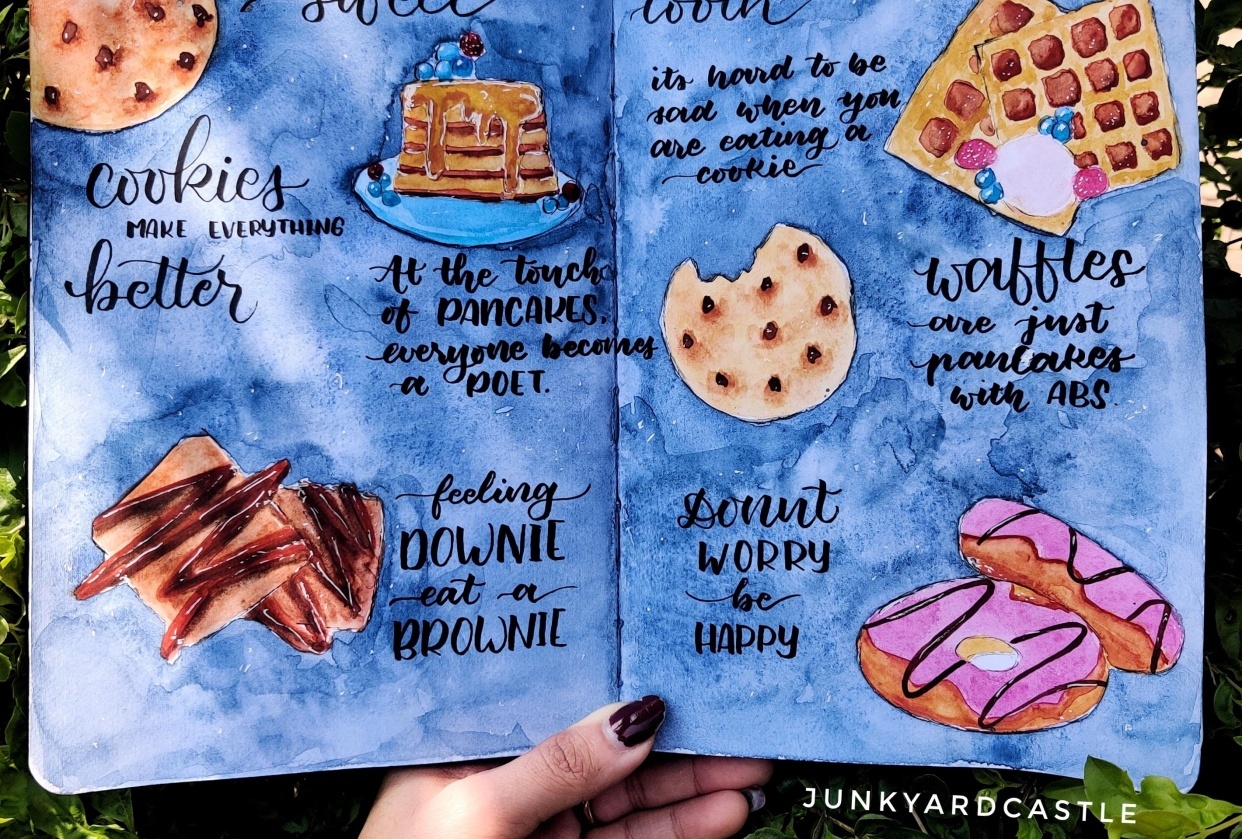 sweet
tooth
cookies
MAKE EVERYTHING
better
At the touch
of PANCAKES.
everyone becomes
a POET.
feeling
DOWNIE
eat a
BROWNIE
its hard to be
sad when you
are eating a
cookie
waffles
are just
pancakes
with ABS.
Donut
WORRY
be
HAPPY
JUNKYARDCASTLE